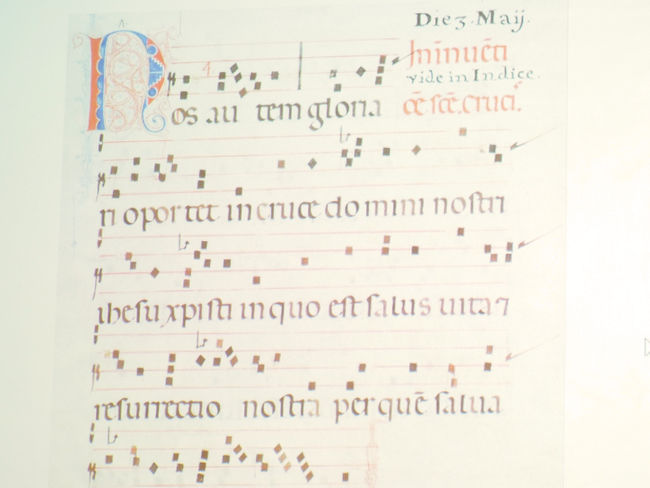 Die 3. Maij.
In inuēti
vide in Indice.
Nos au tem gloria
oē scē. cruci.
ri opor tet in cruce domini nostri
ihesu xpisti in quo est salus uita ⁊
resurrectio nostra per quē salua